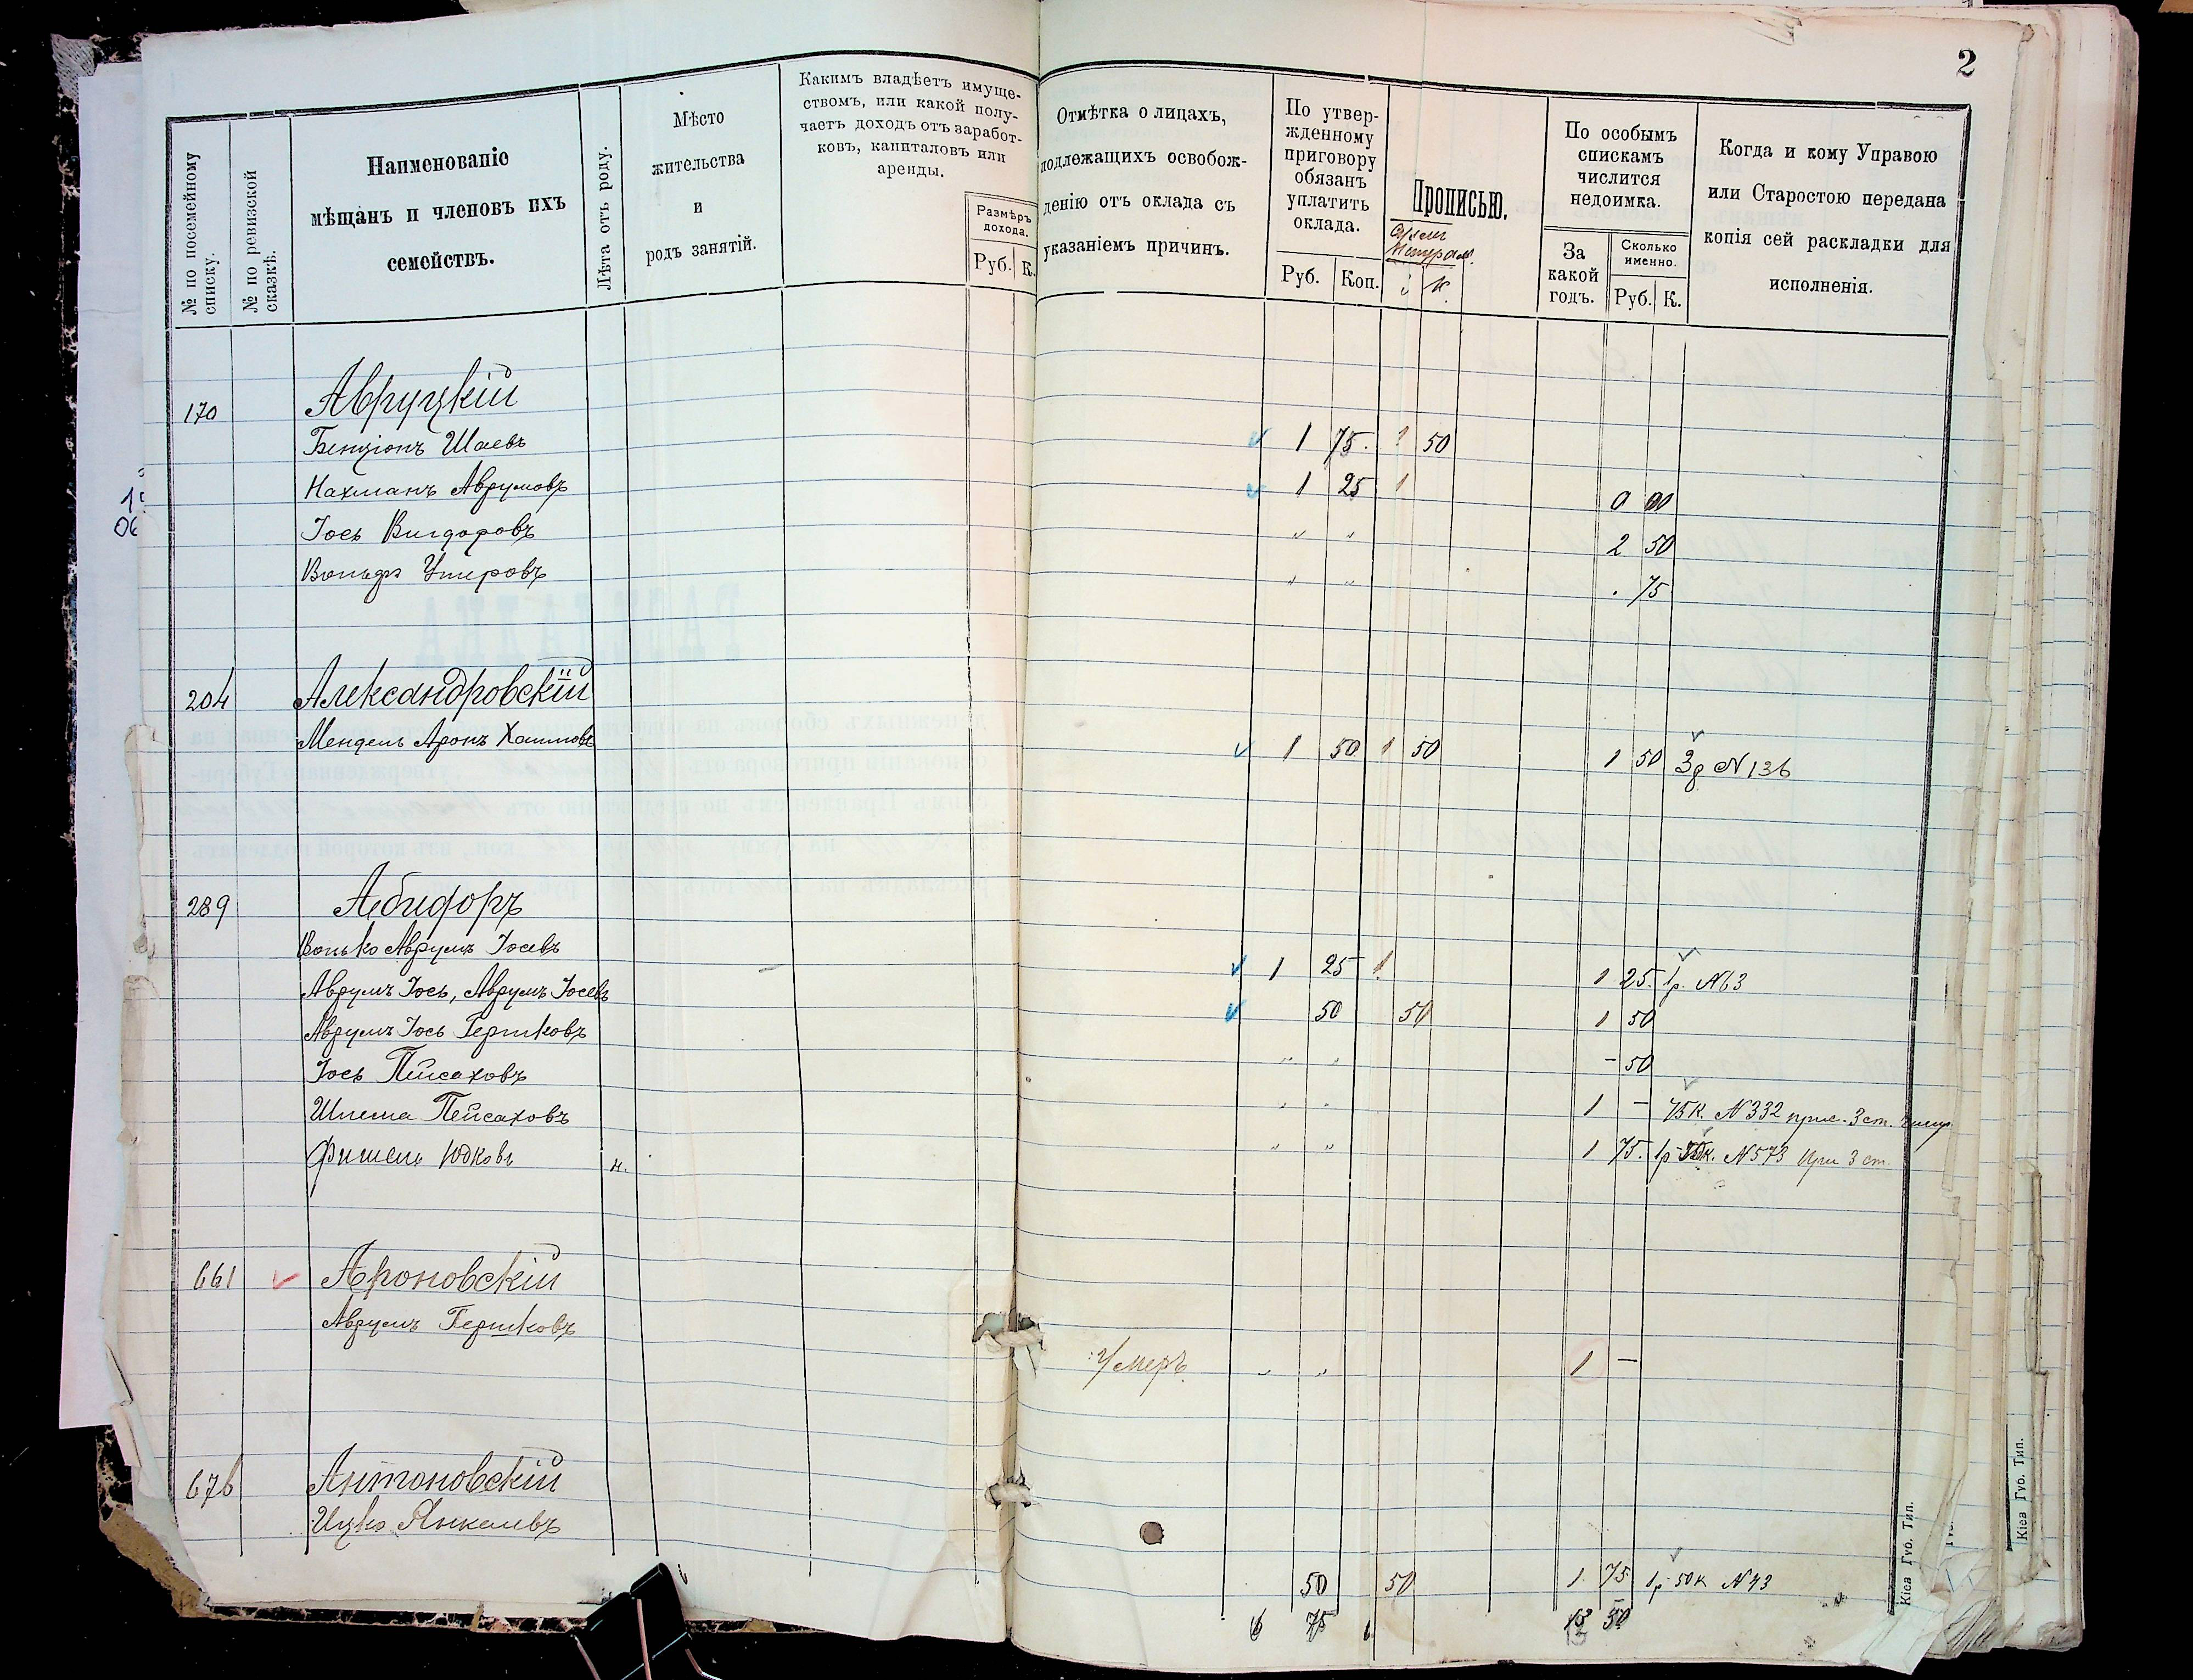 2
№ по посемейному списку.
№ по ревизской сказкѣ.
Наименованіе
мѣщанъ и членовъ ихъ
семействъ.
Лѣта отъ роду.
Мѣсто
жительства
и
родъ занятій.
Какимъ владѣетъ имуще-
ствомъ, или какой полу-
чаетъ доходъ отъ заработ-
ковъ, капиталовъ или
аренды.
Размѣръ
дохода.
Руб. К.
Отмѣтка о лицахъ,
подлежащихъ освобож-
денію отъ оклада съ
указаніемъ причинъ.
По утвер-
жденному
приговору
обязанъ
уплатить
оклада.
Руб. Коп.
Прописью.
К.
По особымъ
спискамъ
числится
недоимка.
За
какой
годъ.
Сколько
именно.
Руб. К.
Когда и кому Управою
или Старостою передана
копія сей раскладки для
исполненія.
170 Авруцкій
Бенціонъ Шаевъ 1 75. 1 50
Нахманъ Аврумовъ 1 25 1 0 00
Іось Вигдоровъ " " 2 50
Вольфъ Умеровъ " " . 75
204 Александровскій
Мендель Аронъ Хаимовъ 1 50 1 50 1 50 3д N 136
289 Абидоръ
Волько Аврумъ Іосевъ 1 25 1 1 25. 1р. N 63
Аврумъ Іось, Аврумъ Іосевъ 50 50 1 50
Аврумъ Іось Гершковъ " " - 50
Іось Пейсаховъ " " 1 - 75 К. N 332 3 ст.
Шлема Пейсаховъ " " 1 75. 1р К. N 573 При 3 ст.
Фишель Юдковъ н.
661 Ароновскій
Аврумъ Гершковъ
Умеръ. " " 1 —
676 Антоновскій
Ицко Янкелевъ
50 50 1 75 1р 50 к N 43
6 75 6 13 50
Кіев. Губ. Тип.
Кіев. Губ. Тип.